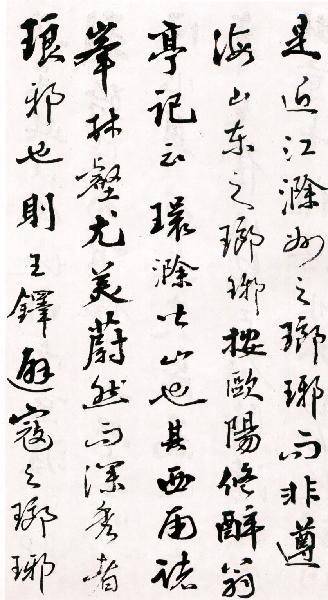 是近江滁州之瑯琊而非遵
海山东之瑯琊按歐陽修醉翁
亭记云環滁皆山也其西南诸
峯林壑尤美蔚然而深秀者
琅邪也則王鐸避寇之瑯琊